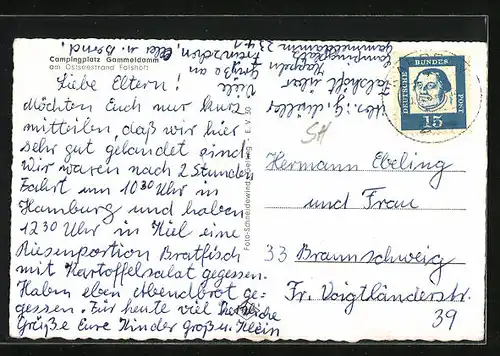 Campingplatz Gammeldamm
am Ostseestrand Falshöft
Liebe Eltern!
Möchten Euch nur kurz
mitteilen, daß wir hier
sehr gut gelandet sind.
Wir waren nach 2 Stunden
Fahrt um 10 30 Uhr in
Hamburg und haben
12 30 Uhr in Kiel eine
Riesenportion Bratfisch
mit Kartoffelsalat gegessen.
Haben eben Abendbrot ge-
gessen. Für heute viel herzliche
Grüße Eure Kinder groß u. klein
Viele
Grüße an
Campingplatz
Gammeldamm 2341
Foto-Schneidewind
DEUTSCHE BUNDESPOST
15
SH
Hermann Ebeling
und Frau
33 Braunschweig
Fr. Voigtländerstr.
39